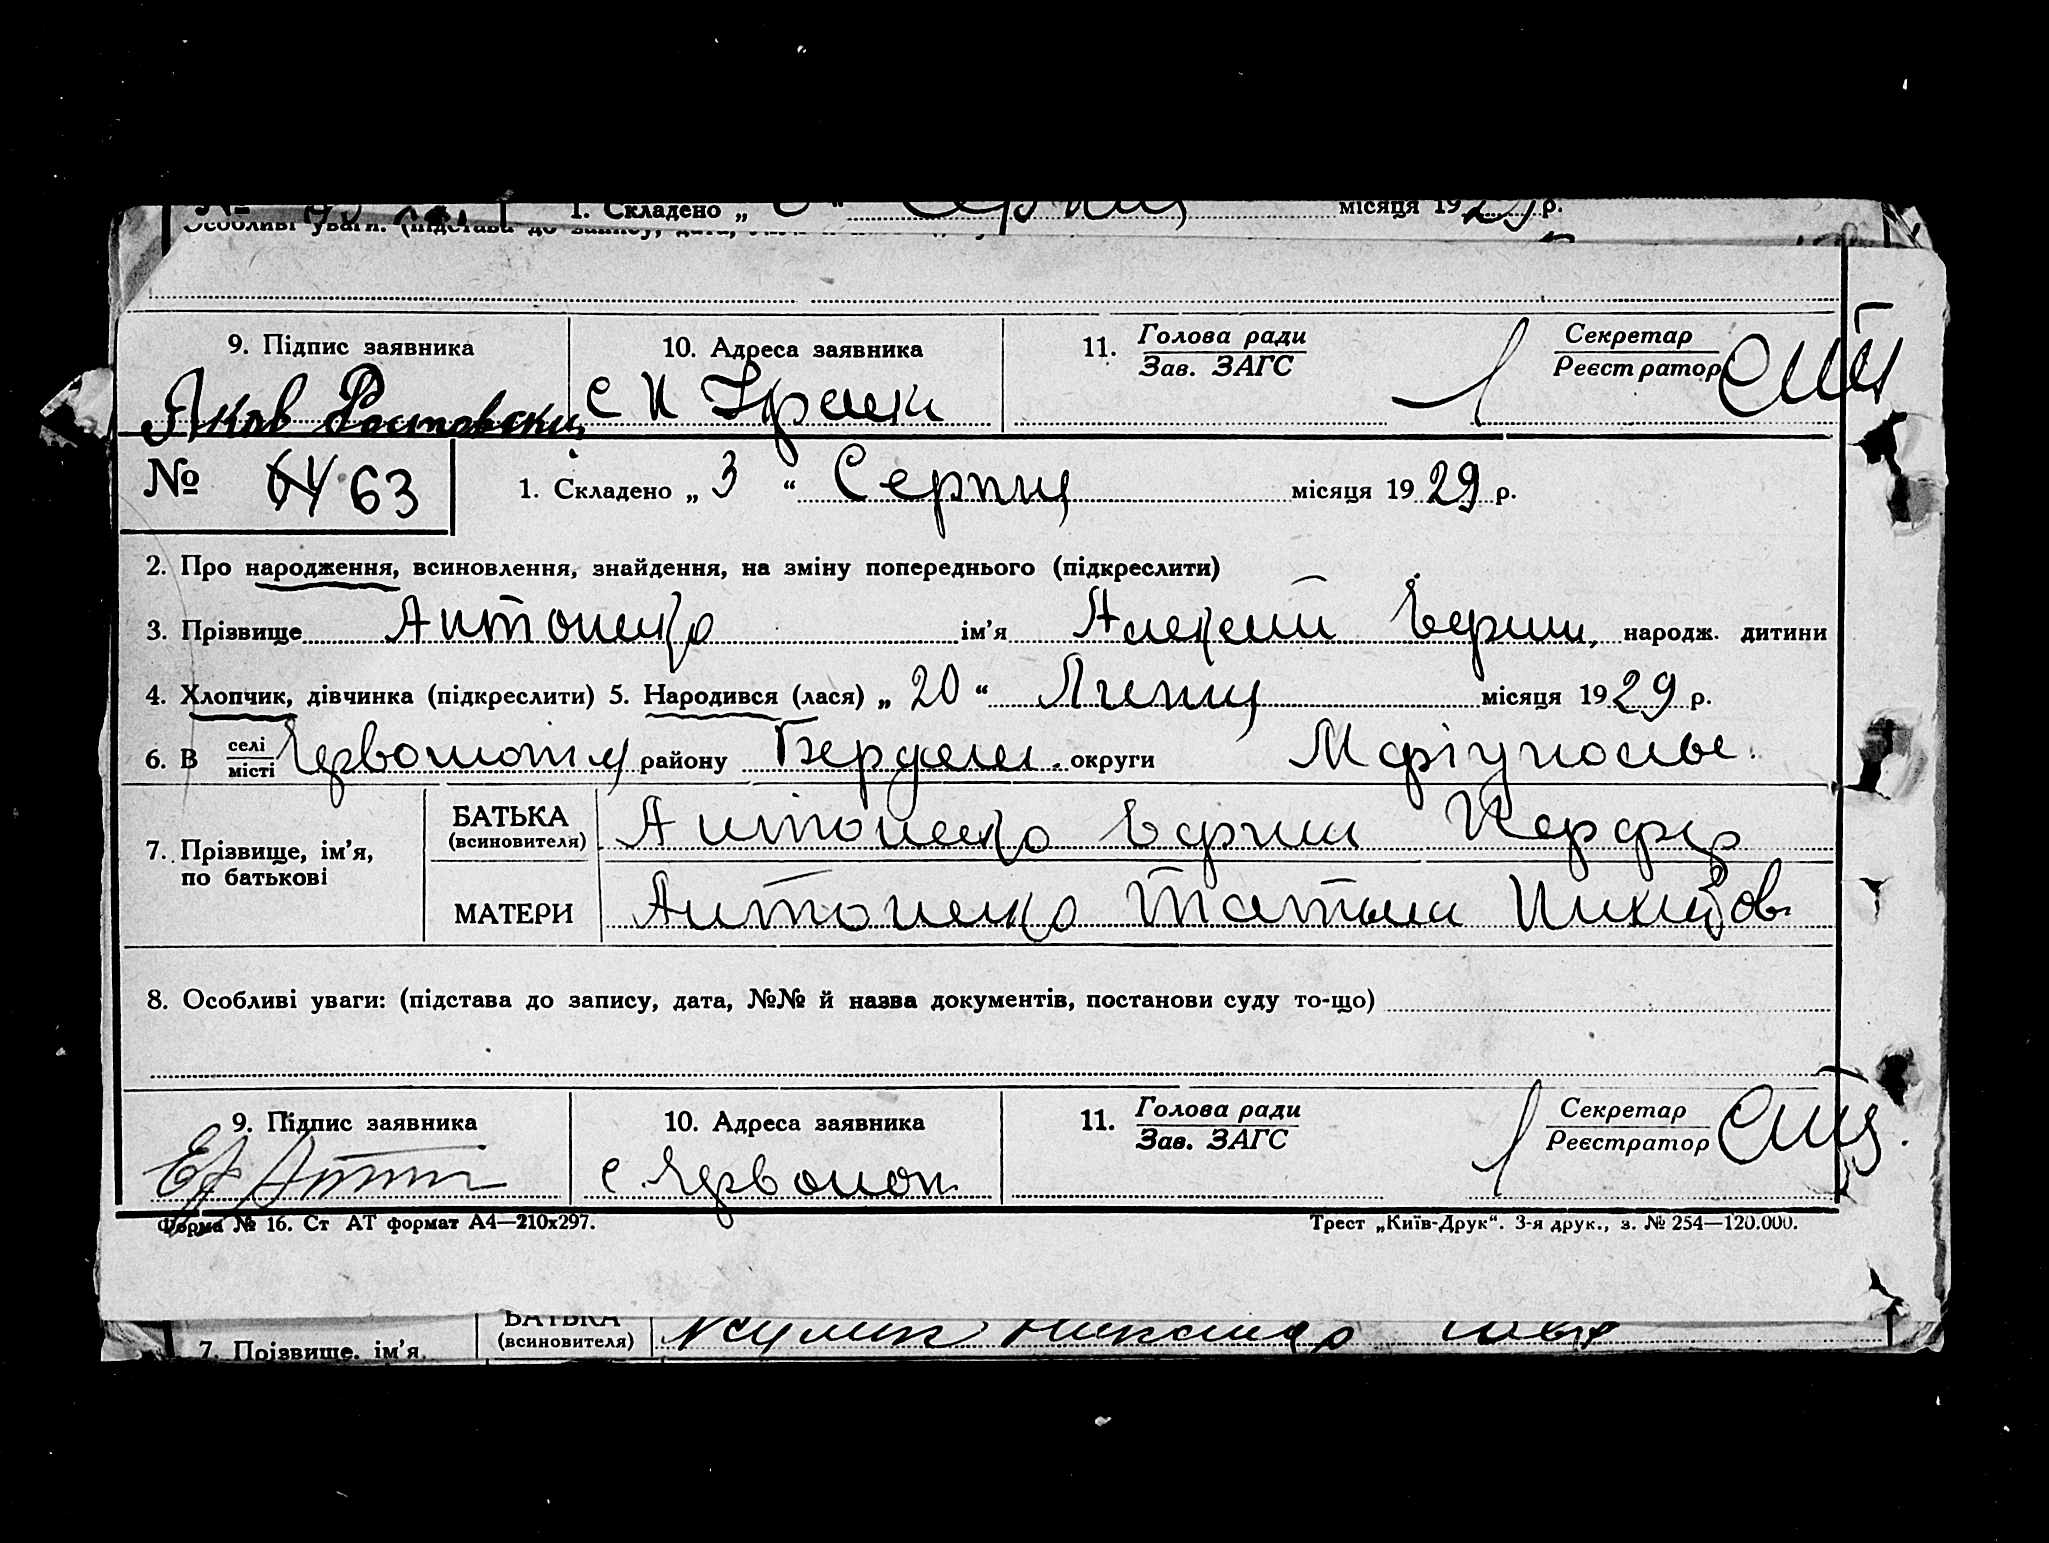 № 1. Складено „ 6 “ Серпня місяця 1929 р.
Особливі уваги: (підстава до запису, дата,
9. Підпис заявника 10. Адреса заявника 11. Голова ради Секретар
Зав. ЗАГС Реєстратор
Яков Ростовский с Н
№ 64 63 1. Складено „ 3 “ Серпня місяця 1929 р.
2. Про народження, всиновлення, знайдення, на зміну попереднього (підкреслити)
3. Прізвище Антоненко ім’я Алексей народж. дитини
4. Хлопчик, дівчинка (підкреслити) 5. Народився (лася) „ 20 “ Липня місяця 1929 р.
6. В селі Червонопіля району Бердян. округи Маріупольс.
місті
БАТЬКА Антоненко
(всиновителя)
7. Прізвище, ім’я,
по батькові
МАТЕРИ Антоненко Татьяна Никитов.
8. Особливі уваги: (підстава до запису, дата, №№ й назва документів, постанови суду то-що)
9. Підпис заявника 10. Адреса заявника 11. Голова ради Секретар
Зав. ЗАГС Реєстратор
с Червоноп.
Форма № 16. Ст АТ формат А4—210х297. Трест „Київ-Друк“. 3-я друк., з. № 254—120.000.
БАТЬКА
(всиновителя)
7. Прізвище, ім’я